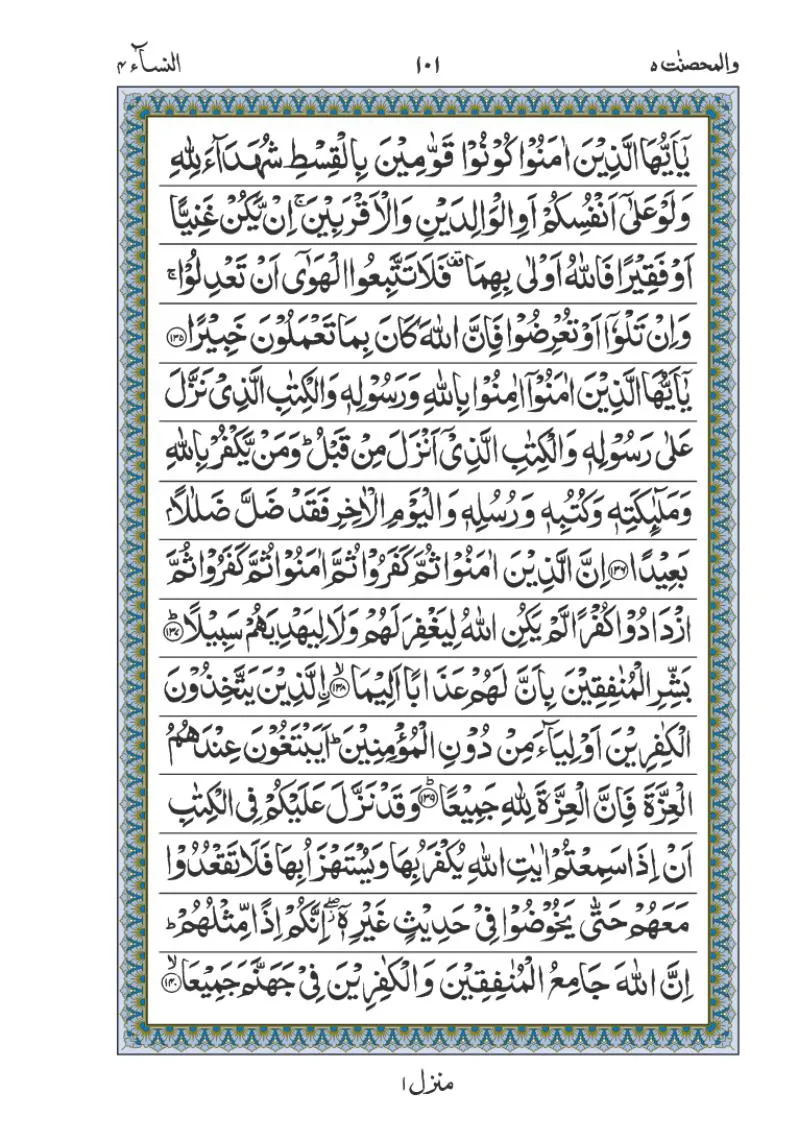 والمحصنٰت ۵
۱۰۱
النسآء ۴
یٰۤاَیُّهَا الَّذِیْنَ اٰمَنُوْا كُوْنُوْا قَوّٰمِیْنَ بِالْقِسْطِ شُهَدَآءَ لِلّٰهِ
وَ لَوْ عَلٰۤی اَنْفُسِكُمْ اَوِ الْوَالِدَیْنِ وَ الْاَقْرَبِیْنَ ۚ اِنْ یَّكُنْ غَنِیًّا
اَوْ فَقِیْرًا فَاللّٰهُ اَوْلٰی بِهِمَا ۫ فَلَا تَتَّبِعُوا الْهَوٰۤی اَنْ تَعْدِلُوْا ۚ
وَ اِنْ تَلْوٗۤا اَوْ تُعْرِضُوْا فَاِنَّ اللّٰهَ كَانَ بِمَا تَعْمَلُوْنَ خَبِیْرًا ﴿۱۳۵﴾
یٰۤاَیُّهَا الَّذِیْنَ اٰمَنُوْۤا اٰمِنُوْا بِاللّٰهِ وَ رَسُوْلِهٖ وَ الْكِتٰبِ الَّذِیْ نَزَّلَ
عَلٰی رَسُوْلِهٖ وَ الْكِتٰبِ الَّذِیْۤ اَنْزَلَ مِنْ قَبْلُ ؕ وَ مَنْ یَّكْفُرْ بِاللّٰهِ
وَ مَلٰٓىِٕكَتِهٖ وَ كُتُبِهٖ وَ رُسُلِهٖ وَ الْیَوْمِ الْاٰخِرِ فَقَدْ ضَلَّ ضَلٰلًۢا
بَعِیْدًا ﴿۱۳۶﴾ اِنَّ الَّذِیْنَ اٰمَنُوْا ثُمَّ كَفَرُوْا ثُمَّ اٰمَنُوْا ثُمَّ كَفَرُوْا ثُمَّ
ازْدَادُوْا كُفْرًا لَّمْ یَكُنِ اللّٰهُ لِیَغْفِرَ لَهُمْ وَ لَا لِیَهْدِیَهُمْ سَبِیْلًا ﴿۱۳۷﴾ؕ
بَشِّرِ الْمُنٰفِقِیْنَ بِاَنَّ لَهُمْ عَذَابًا اَلِیْمَا ﴿۱۳۸﴾ۙ ۟الَّذِیْنَ یَتَّخِذُوْنَ
الْكٰفِرِیْنَ اَوْلِیَآءَ مِنْ دُوْنِ الْمُؤْمِنِیْنَ ؕ اَیَبْتَغُوْنَ عِنْدَهُمُ
الْعِزَّةَ فَاِنَّ الْعِزَّةَ لِلّٰهِ جَمِیْعًا ﴿۱۳۹﴾ؕ وَ قَدْ نَزَّلَ عَلَیْكُمْ فِی الْكِتٰبِ
اَنْ اِذَا سَمِعْتُمْ اٰیٰتِ اللّٰهِ یُكْفَرُ بِهَا وَ یُسْتَهْزَاُ بِهَا فَلَا تَقْعُدُوْا
مَعَهُمْ حَتّٰی یَخُوْضُوْا فِیْ حَدِیْثٍ غَیْرِهٖۤ ۖؗ اِنَّكُمْ اِذًا مِّثْلُهُمْ ؕ
اِنَّ اللّٰهَ جَامِعُ الْمُنٰفِقِیْنَ وَ الْكٰفِرِیْنَ فِیْ جَهَنَّمَ جَمِیْعَا ﴿۱۴۰﴾ۙ
منزل ۱